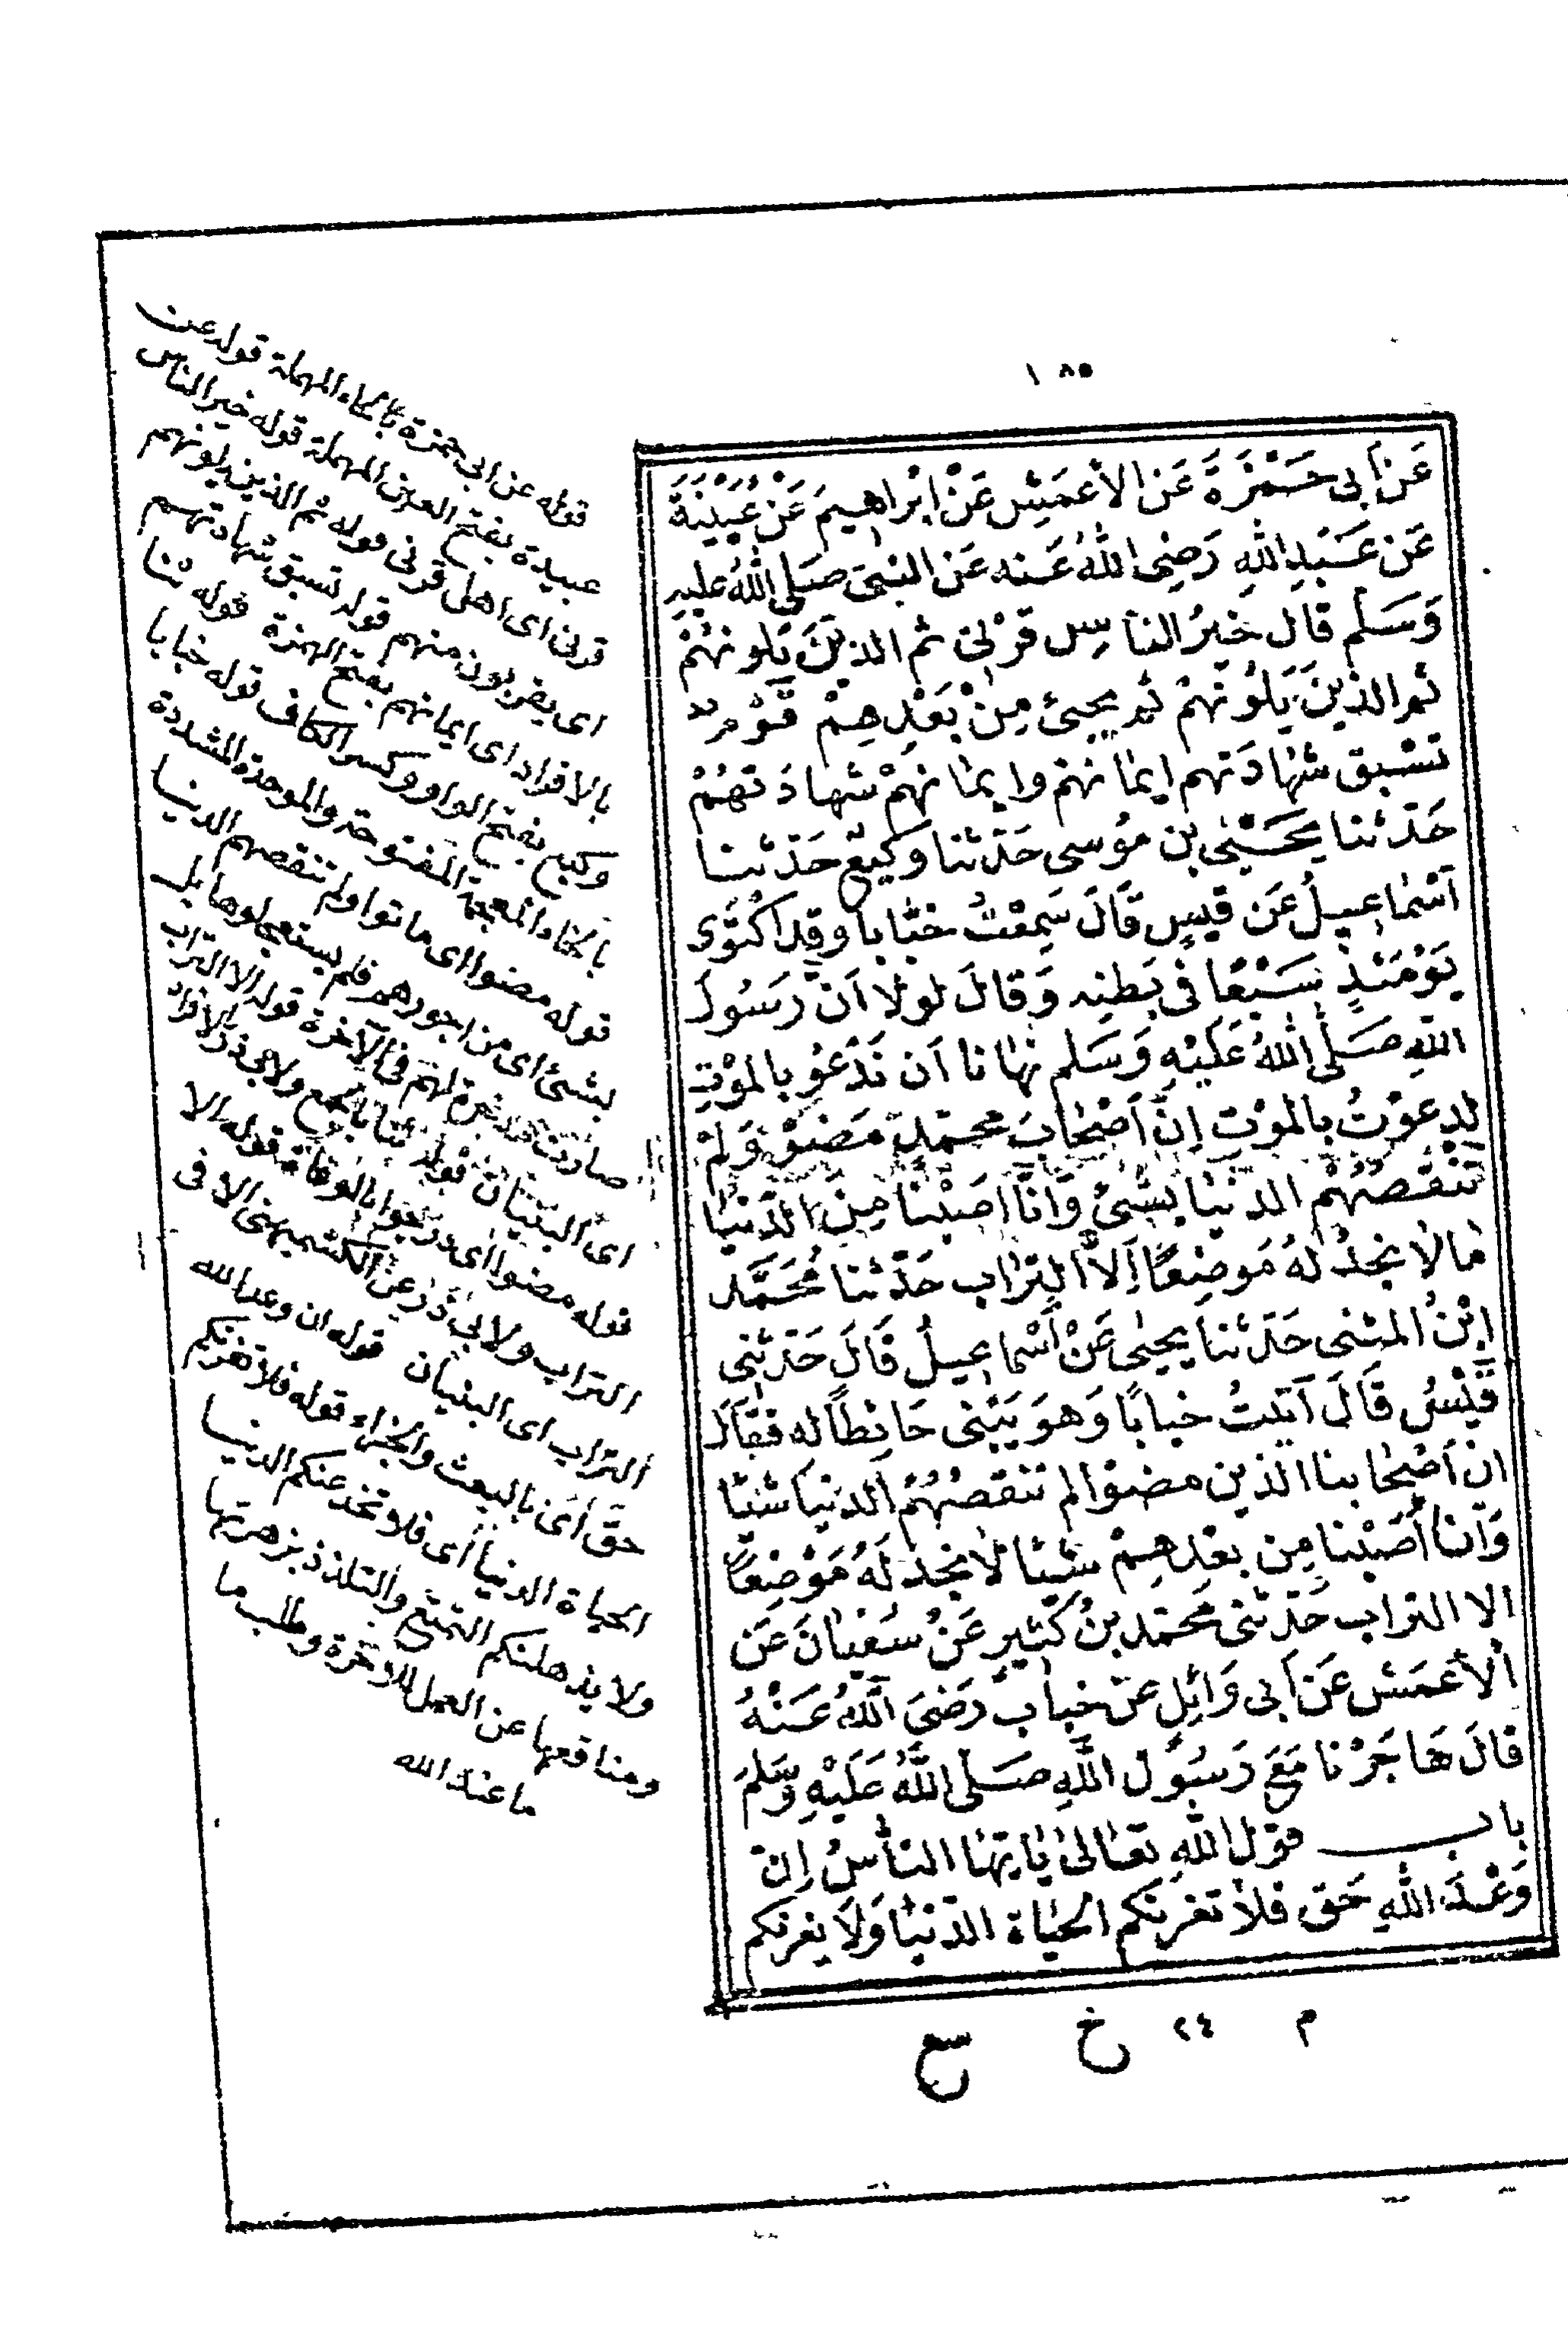 ١٨٥
عَن أَبى حَمْزَةَ عَن الأعمَشِ عَنْ ابْراهيمَ عَنْ عُبَيْدَةَ
عَن عَبْدِ اللّٰهِ رَضِىَ اللّٰهُ عَنه عَن النبىّ صَلى اللّٰهُ عليهِ
وَسَلم قال خيرُ الناسِ قرْنى ثم الذينَ يَلونهُمْ
ثم الذينَ يَلُونَهُمْ ثم يجيئ مِنْ بَعْدِهِمْ قَوْمٌ
تسْبق شهادَتهم ايمانهم وايمانهُمْ شهادَتهُمْ
حَدّثنا يَحْيٰى بن مُوسى حَدّثنا وَكيعٌ حَدّثنا
اسْماعيلُ عَن قيسٍ قَالَ سَمِعْتُ خبّابا وقد اكْتَوٰى
يَوْمَئذٍ سَبْعًا فى بَطنِه وَقالَ لولا اَنّ رَسُولَ
اللّٰهِ صَلّى اللّٰهُ عَليْهِ وَسَلم نهانا اَن نَدْعُوَ بالموْتِ
لدعوْتُ بالموْتِ اِنّ اَصْحابَ محمّدٍ مَضوْا وَلمْ
تَنْقُصْهُمْ الدنيا بشَىْئٍ وَاَنّا اصَبْنا مِنَ الدّنيا
مالا نجدُ لهُ مَوضِعًا اِلاّ الترابَ حَدّثنا مُحَمَّد
ابْنُ المثنى حَدّثنا يحيٰى عَنْ اسْماعيلَ قَالَ حَدّثنى
قَيْسُ قَالَ اَتيتُ خبابًا وَهوَ يَبْنى حَائِطاً له فقَالَ
انّ اَصْحابنا الذين مضوْا لم تنقصْهُمْ الدنيا شيئا
وَاَنا اَصَبْنا مِن بعْدهِمْ شيئا لا نجدُ لَهُ مَوْضِعاً
الا التراب حَدّثنى محَمّد بنُ كَثيرٍ عَنْ سُفيٰانَ عَن
الأعمَش عَن اَبى وَائِلٍ عَنْ خبابٍ رَضىَ اللّٰهُ عَنْهُ
قالَ هَاجَرْنا مَعَ رَسُولِ اللّٰهِ صَلى اللّٰهُ عَليْهِ وَسَلمَ
باب قوْل اللّٰهِ تعَالىٰ يٰايّها النّاسُ اِنّ
وَعْدَ اللّٰهِ حَق فلا تغرنكم الحيٰاة الدّنيٰا وَلَا يغرنكم
م ٢٤ خ سع
قوله عن ابى حمزة بالحاء المهملة قوله عن
عبيدة بفتح العين المهملة قوله خير الناس
قرنى اى اهل قرنى قوله ثم الذين يلونهم
اى يقربون منهم قوله تسبق شهادتهم
بالافراد اى ايمانهم بفتح الهمزة قوله ثنا
وكيع بفتح الواو وكسر الكاف قوله خبابا
بالخاء المعجمة المفتوحة والموحدة المشددة
قوله مضوا اى ماتوا ولم تنقصهم الدنيا
بشئ اى من اجورهم فلم يستعجلوها بل
صارت مدخرة لهم فى الآخرة قوله الا التراب
اى البنيان قوله ثنا بالجمع ولابى ذر بالافراد
قوله مضوا اى درجوا بالوفاة قوله الا
التراب ولابى ذر عن الكشميهنى الا فى
التراب اى البنيان قوله ان وعد الله
حق اى بالبعث والجزاء قوله فلا تغرنكم
الحياة الدنيا اى فلا تخدعنكم الدنيا
ولا يذهلنكم التمتع والتلذذ بزهرتها
ومنافعها عن العمل للآخرة وطلب ما
ما عند الله